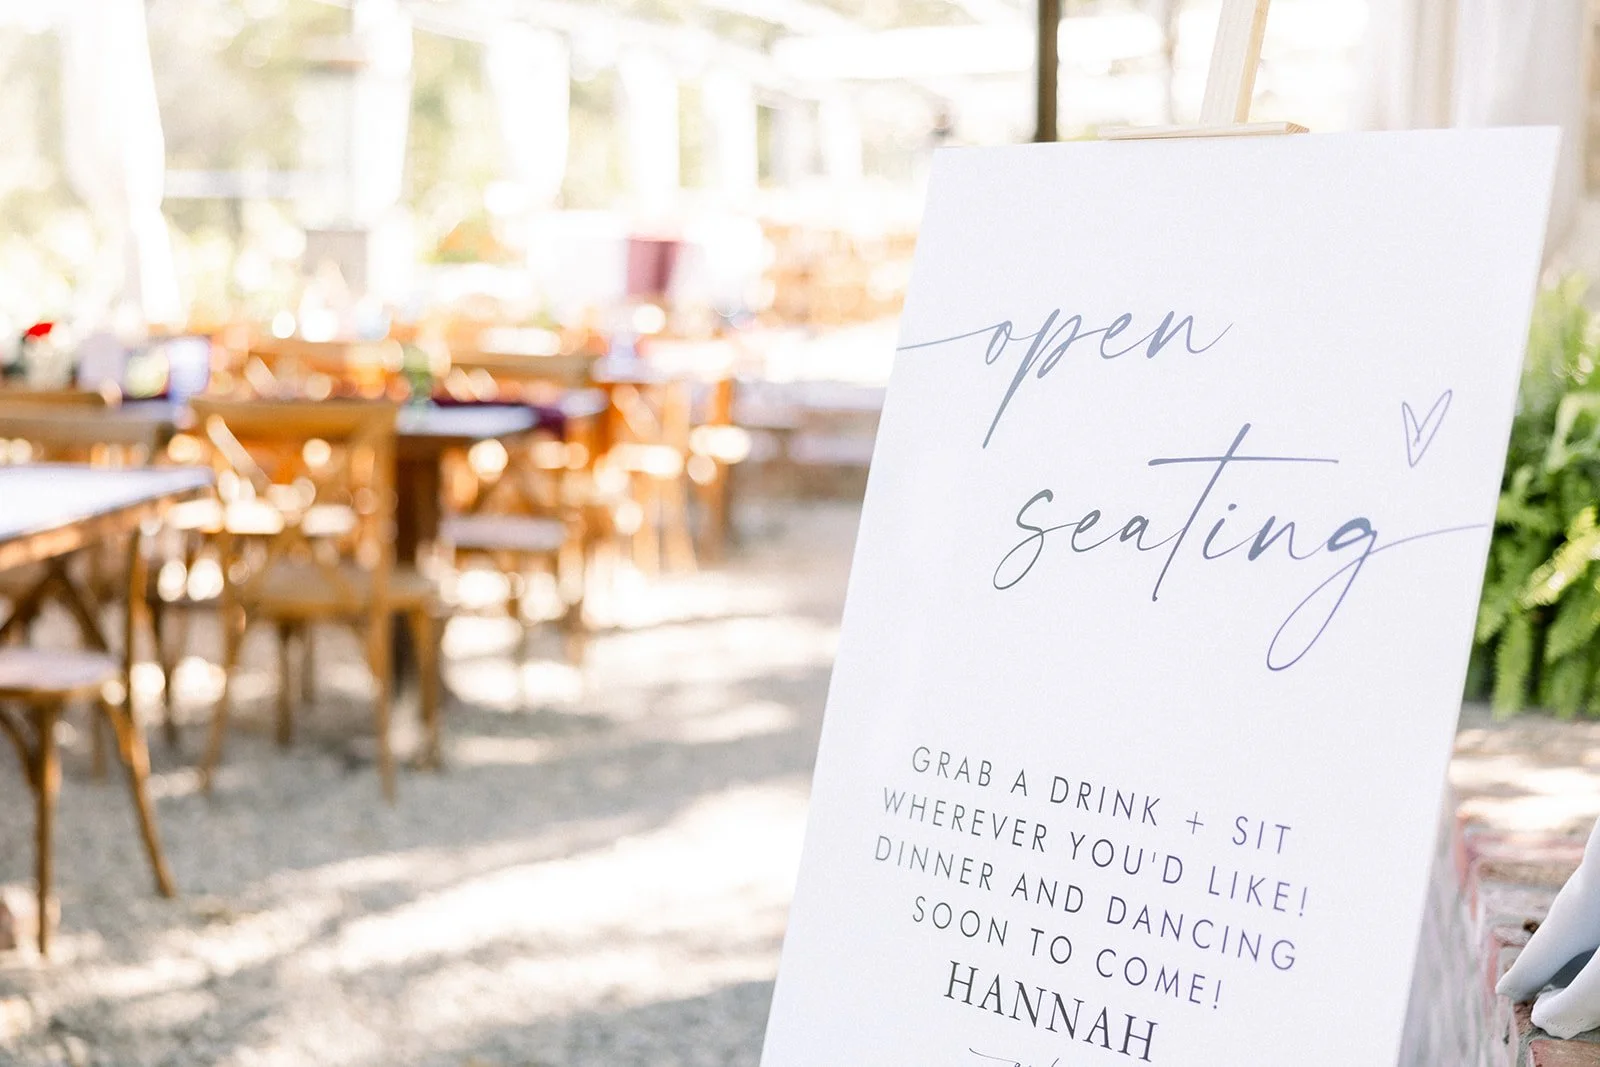 open
seating
GRAB A DRINK + SIT
WHEREVER YOU'D LIKE!
DINNER AND DANCING
SOON TO COME!
HANNAH